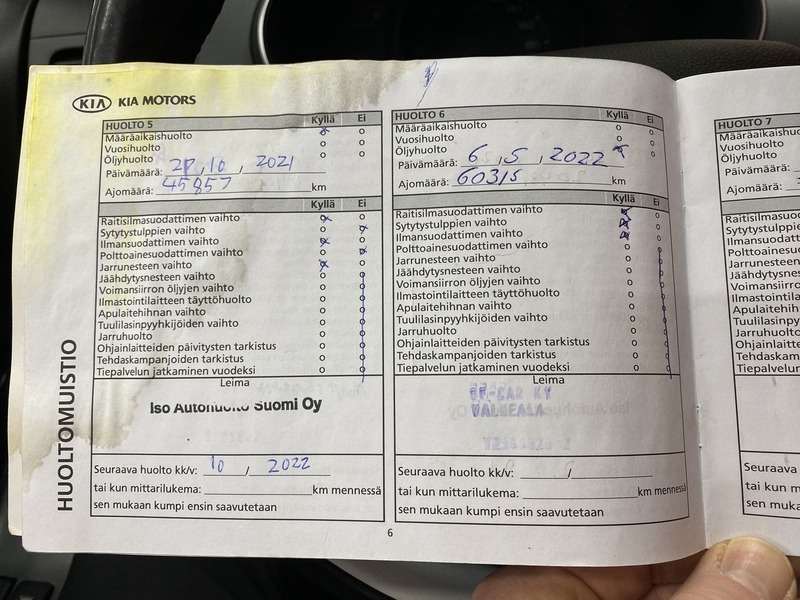 KIA KIA MOTORS
HUOLTOMUISTIO
HUOLTO 5 Kyllä Ei
Määräaikaishuolto
Vuosihuolto
Öljyhuolto
Päivämäärä: 10 , 2021
Ajomäärä: 45857 km
Kyllä Ei
Raitisilmasuodattimen vaihto
Sytytystulppien vaihto
Ilmansuodattimen vaihto
Polttoainesuodattimen vaihto
Jarrunesteen vaihto
Jäähdytysnesteen vaihto
Voimansiirron öljyjen vaihto
Ilmastointilaitteen täyttöhuolto
Apulaitehihnan vaihto
Tuulilasinpyyhkijöiden vaihto
Jarruhuolto
Ohjainlaitteiden päivitysten tarkistus
Tehdaskampanjoiden tarkistus
Tiepalvelun jatkaminen vuodeksi
Leima
Iso Autohuolto Suomi Oy
Seuraava huolto kk/v: 10 / 2022
tai kun mittarilukema: km mennessä
sen mukaan kumpi ensin saavutetaan
HUOLTO 6 Kyllä Ei
Määräaikaishuolto
Vuosihuolto
Öljyhuolto
Päivämäärä: 6 , 5 , 2022
Ajomäärä: 60315 km
Kyllä Ei
Raitisilmasuodattimen vaihto
Sytytystulppien vaihto
Ilmansuodattimen vaihto
Polttoainesuodattimen vaihto
Jarrunesteen vaihto
Jäähdytysnesteen vaihto
Voimansiirron öljyjen vaihto
Ilmastointilaitteen täyttöhuolto
Apulaitehihnan vaihto
Tuulilasinpyyhkijöiden vaihto
Jarruhuolto
Ohjainlaitteiden päivitysten tarkistus
Tehdaskampanjoiden tarkistus
Tiepalvelun jatkaminen vuodeksi
Leima
VALKEALA
Seuraava huolto kk/v: /
tai kun mittarilukema: km mennessä
sen mukaan kumpi ensin saavutetaan
6
HUOLTO 7
Määräaikaishuolto
Vuosihuolto
Öljyhuolto
Päivämäärä:
Ajomäärä:
Seuraava
tai kun m
sen muk